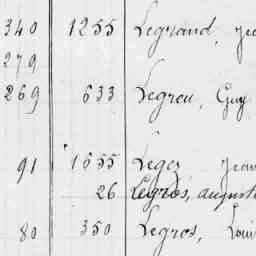 340 1255 Legrand,
279
269 633 Legreu, Guy
91 1655 Legez
26 Legros, auguste
80 350 Legros, Loui